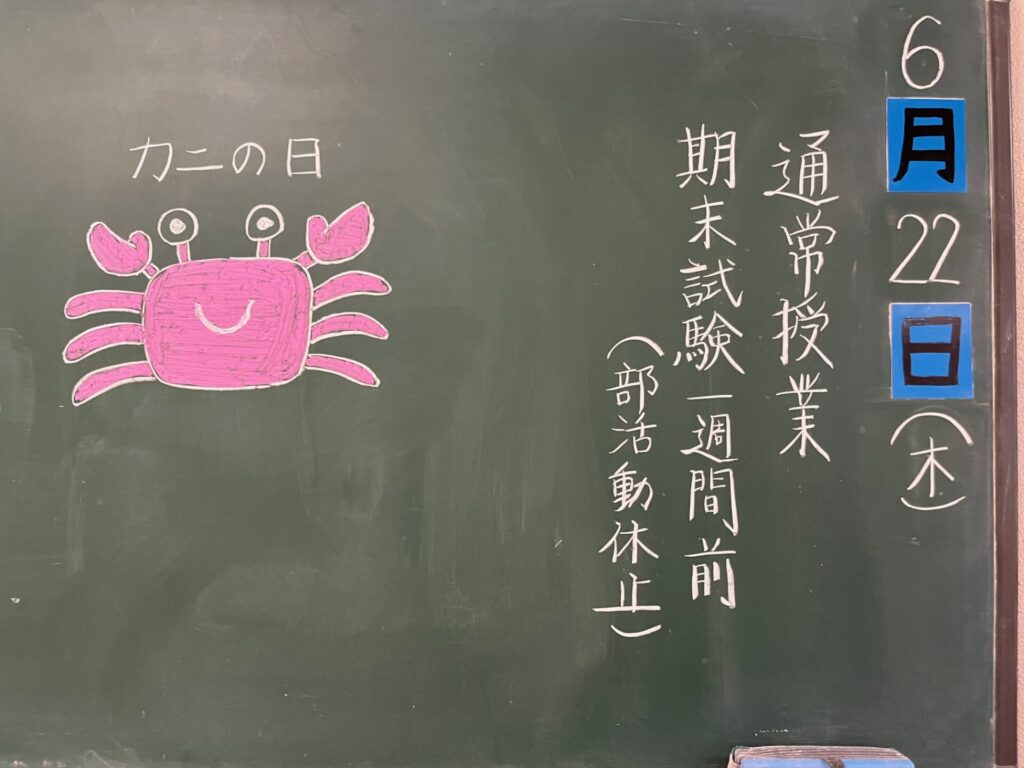 6月22日(木)
通常授業
期末試験一週間前
(部活動休止)
カニの日